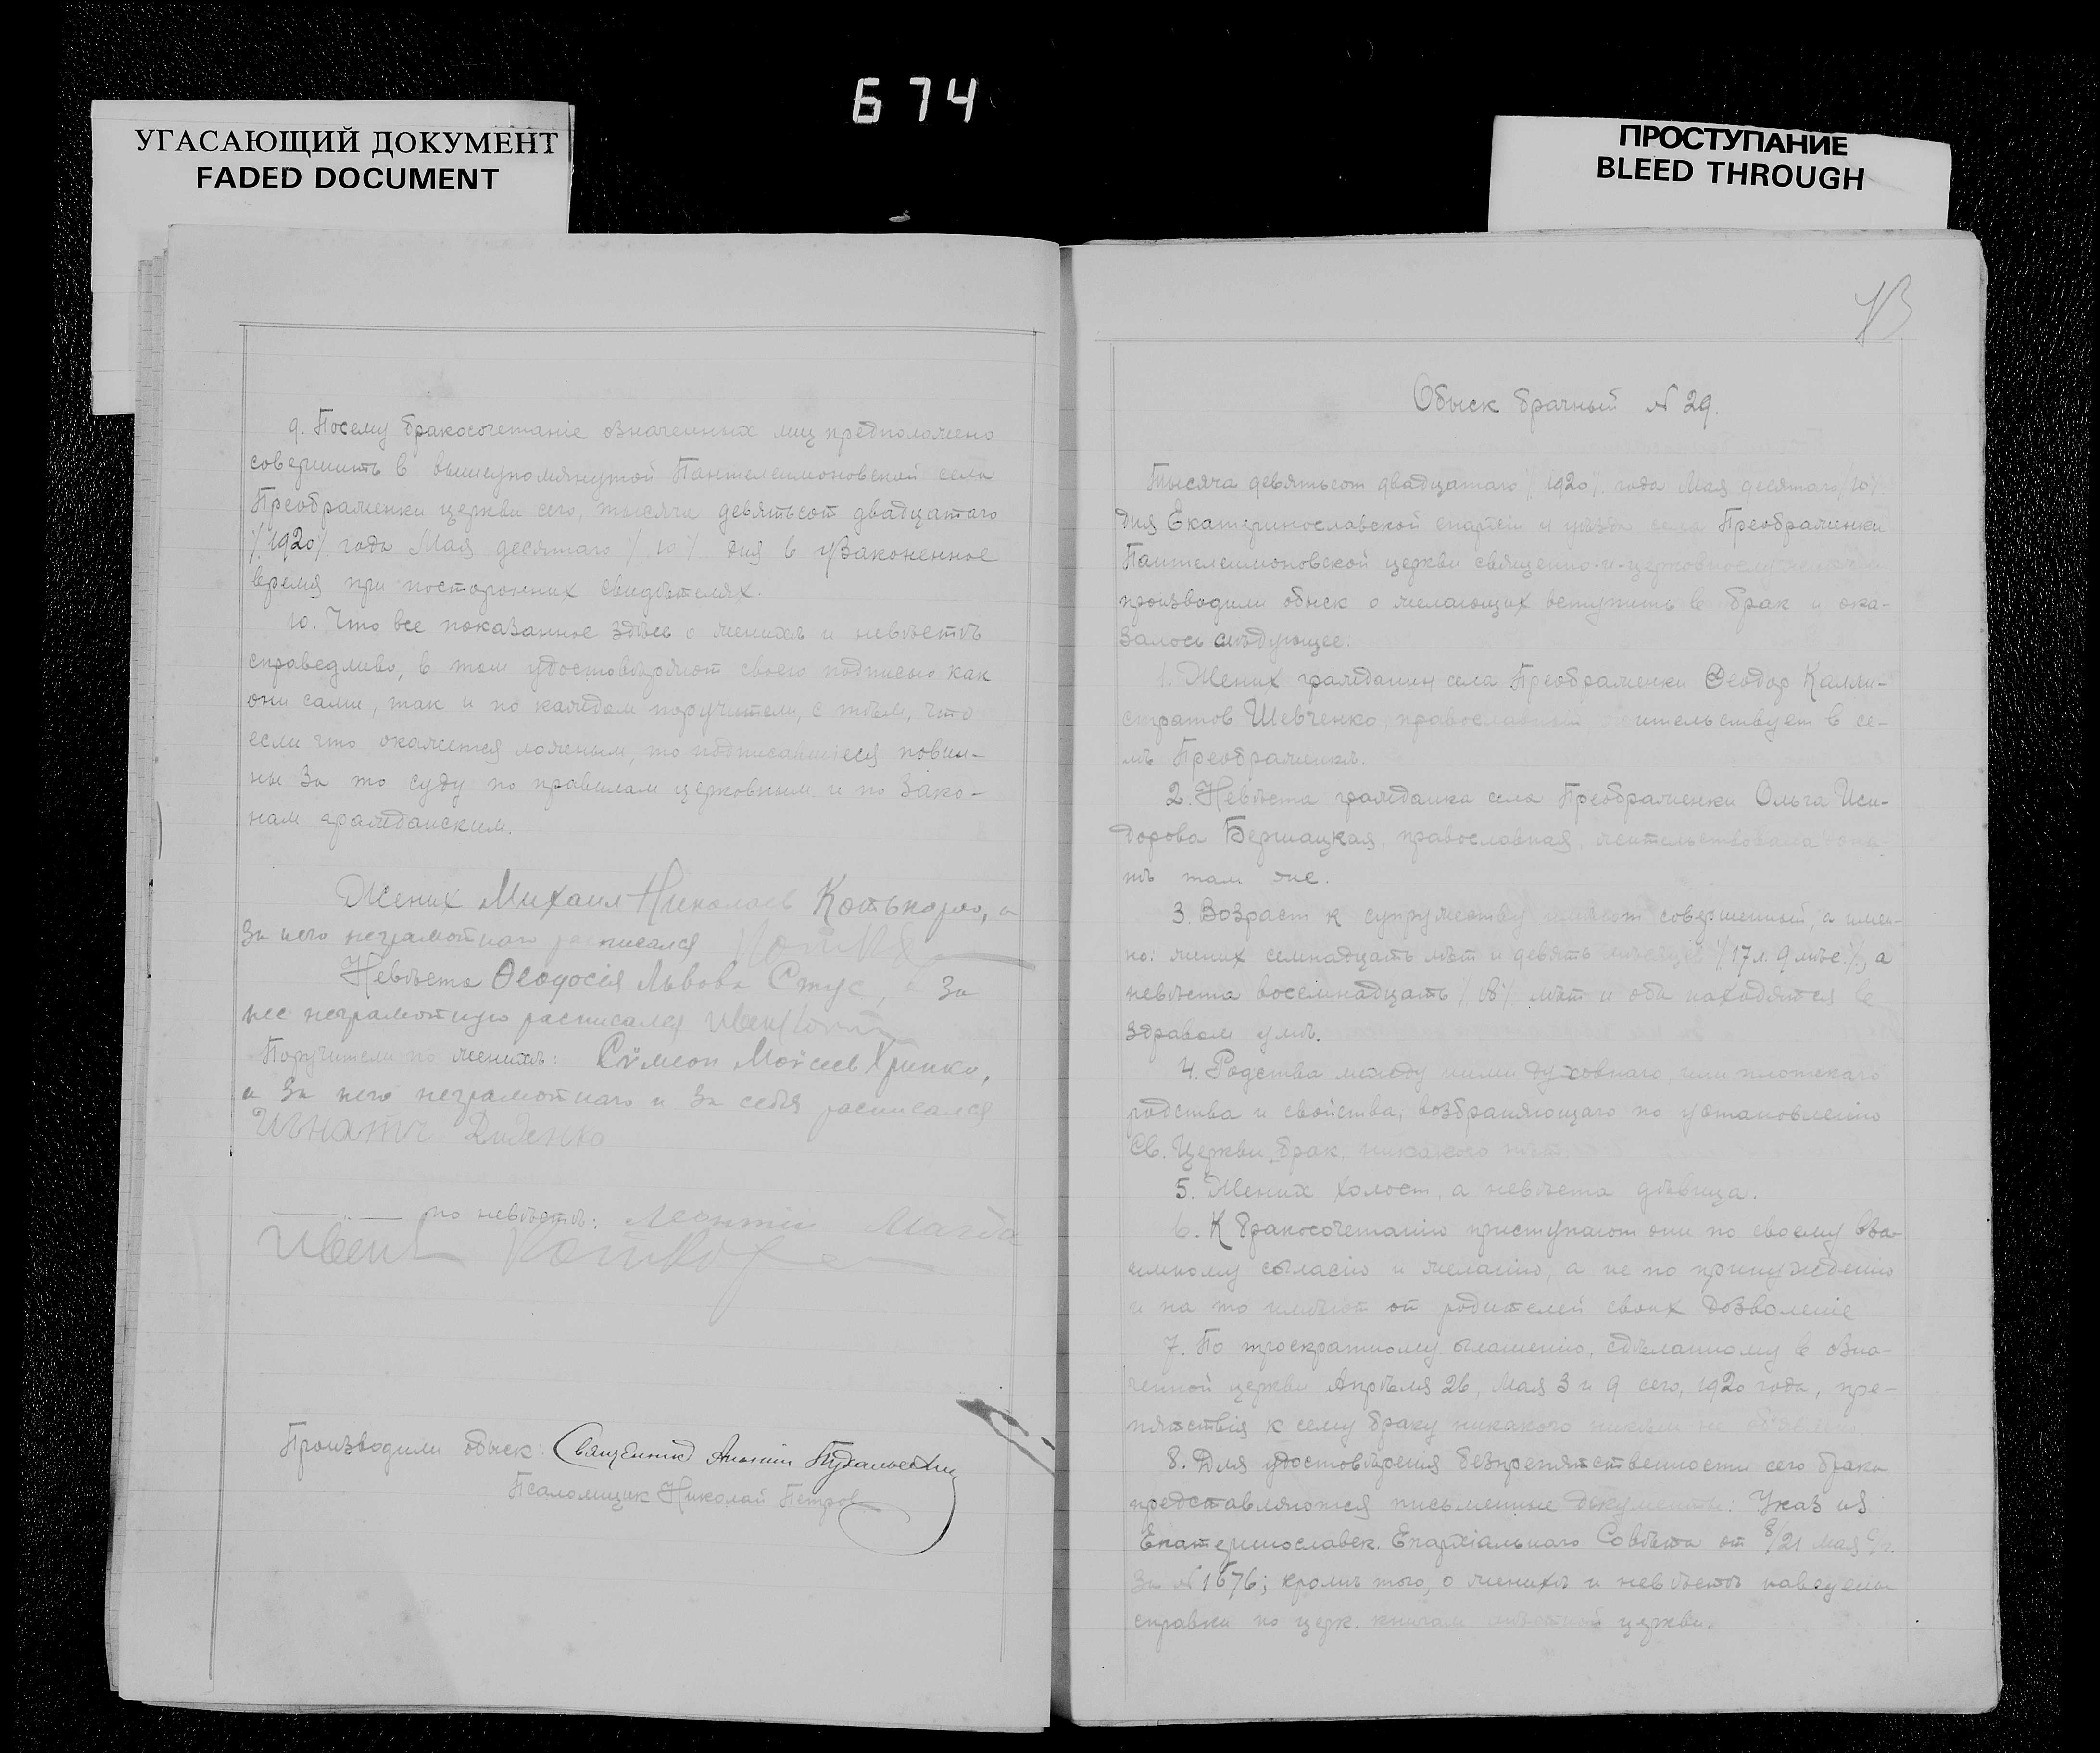 674
УГАСАЮЩИЙ ДОКУМЕНТ
FADED DOCUMENT
ПРОСТУПАНИЕ
BLEED THROUGH
9. Посему бракосочетаніе означенных лиц предположено
совершить в вышеупомянутой Пантелеимоновской села
Преображенки церкви сего, тысяча девятьсот двадцатаго
/1920/ года Мая десятаго /10/ дня в узаконенное
время при посторонних свидѣтелях.
10. Что все показанное здѣсь о женихѣ и невѣстѣ
справедливо, в том удостовѣряют своею подписью как
они сами, так и по каждом поручители, с тѣм, что
если что окажется ложным, то подписавшіеся повин-
ны за то суду по правилам церковным и по зако-
нам гражданским.
Жених Михаил Николаев Котькоро, а
за него неграмотнаго расписался
Невѣста Ѳеодосія Львова Стус, а за
нее неграмотную расписался
Поручители по женихѣ: Сѵмеон Мойсеев Хринко,
а за него неграмотнаго и за себя расписался
Игнатъ Диденко
по невѣстѣ: Леонтій
Производили обыск: Священник Антоній
Псаломщик Николай Петров
43
Обыск брачный № 29.
Тысяча девятьсот двадцатаго /1920/ года Мая десятаго /10/
дня Екатеринославской епархіи и уѣзда села Преображенки
Пантелеимоновской церкви священно-и-церковнослужители
производили обыск о желающих вступить в брак и ока-
залось слѣдующее:
1. Жених гражданин села Преображенки Ѳеодор Калли-
стратов Шевченко, православный, жительствует в се-
лѣ Преображенкѣ.
2. Невѣста гражданка села Преображенки Ольга Иси-
дорова Бершацкая, православная, жительствовала доны-
нѣ там же.
3. Возраст к супружеству имѣют совершенный, а имен-
но: жених семнадцать лѣт и девять мѣсяцев /17 л. 9 мѣс./, а
невѣста восемнадцать /18/ лѣт и оба находятся в
здравом умѣ.
4. Родства между ними духовнаго, или плотскаго
родства и свойства, возбраняющаго по установленію
Св. Церкви брак, никакого нѣт.
5. Жених холост, а невѣста дѣвица.
6. К бракосочетанію приступают они по своему вза-
имному согласію и желанію, а не по принужденію
и на то имѣют от родителей своих дозволеніе
7. По троекратному оглашенію, сдѣланному в озна-
ченной церкви Апрѣля 26, Мая 3 и 9 сего, 1920 года, пре-
пятствія к сему браку никакого никѣм не объявлено.
8. Для удостовѣренія безпрепятственности сего брака
представляются письменные документы: Указ из
Екатеринославск. Епархіальнаго Совѣта от 8/21 мая с/г.
за № 1676; кромѣ того, о женихѣ и невѣстѣ наведены
справки по церк. книгам мѣстной церкви.